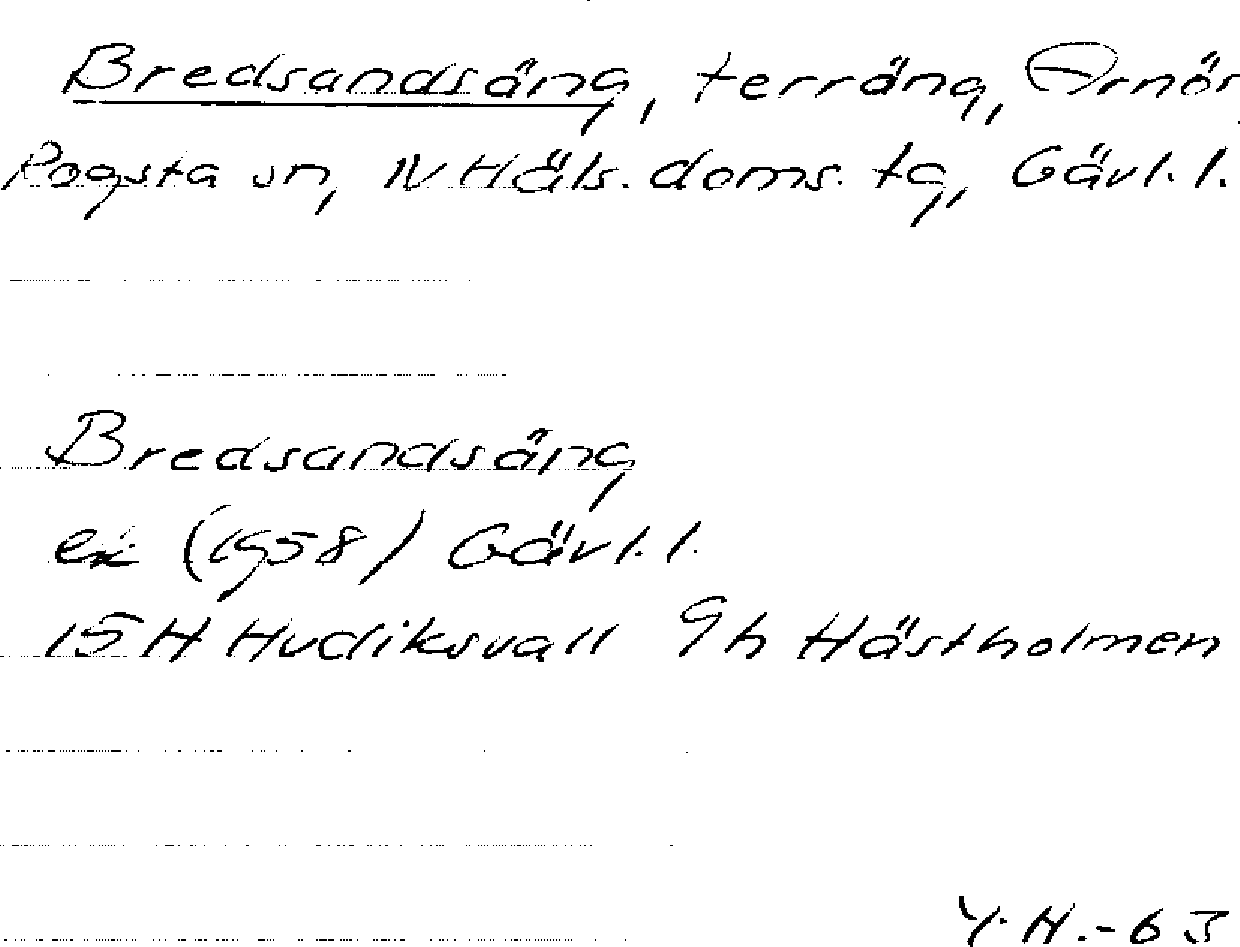 Bredsandsäng, terräng, Arnör,
Rogsta sn, N Häls. doms. tg, Gävl. l.
Bredsandsäng
ek (1958) Gävl. l.
15 H Hudiksvall 9h Hästholmen
Y. H. - 63